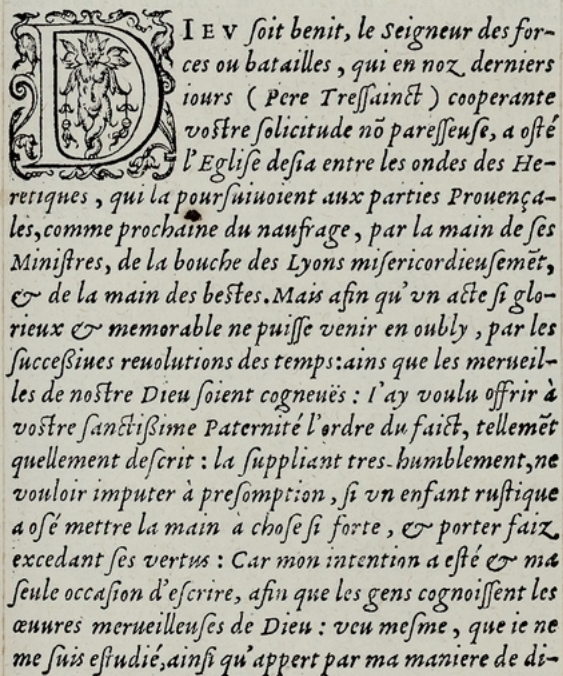 DIEV ſoit benit, le Seigneur des for-
ces ou batailles, qui en noz derniers
iours (Pere Treſſainct) cooperante
voſtre ſolicitude nõ pareſſeuſe, a oſté
l'Egliſe deſia entre les ondes des He-
retiques, qui la pourſuiuoient aux parties Prouença-
les, comme prochaine du naufrage, par la main de ſes
Miniſtres, de la bouche des Lyons miſericordieuſemẽt,
& de la main des beſtes. Mais afin qu'vn acte ſi glo-
rieux & memorable ne puiſſe venir en oubly, par les
ſucceßiues reuolutions des temps: ains que les merueil-
les de noſtre Dieu ſoient cogneuës: I'ay voulu offrir à
voſtre ſanctißime Paternité l'ordre du faict, tellemẽt
quellement deſcrit: la ſuppliant tres-humblement, ne
vouloir imputer à preſomption, ſi vn enfant ruſtique
a oſé mettre la main à choſe ſi forte, & porter faiz
excedant ſes vertus: Car mon intention a eſté & ma
ſeule occaſion d'eſcrire, afin que les gens cognoiſſent les
œuures merueilleuſes de Dieu: veu meſme, que ie ne
me ſuis eſtudié, ainſi qu'appert par ma maniere de di-